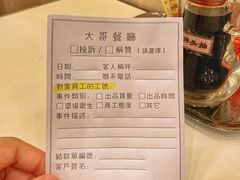 大哥餐廳
□投訴 / □稱贊 (請選擇)
日期: 客人稱呼:
時間: 聯系電話:
對象員工的工號:
事件類別: □出品質量 □出品時間
□環境衛生 □員工態度 □其它
事件描述:
結款單編號:
客戶簽名: